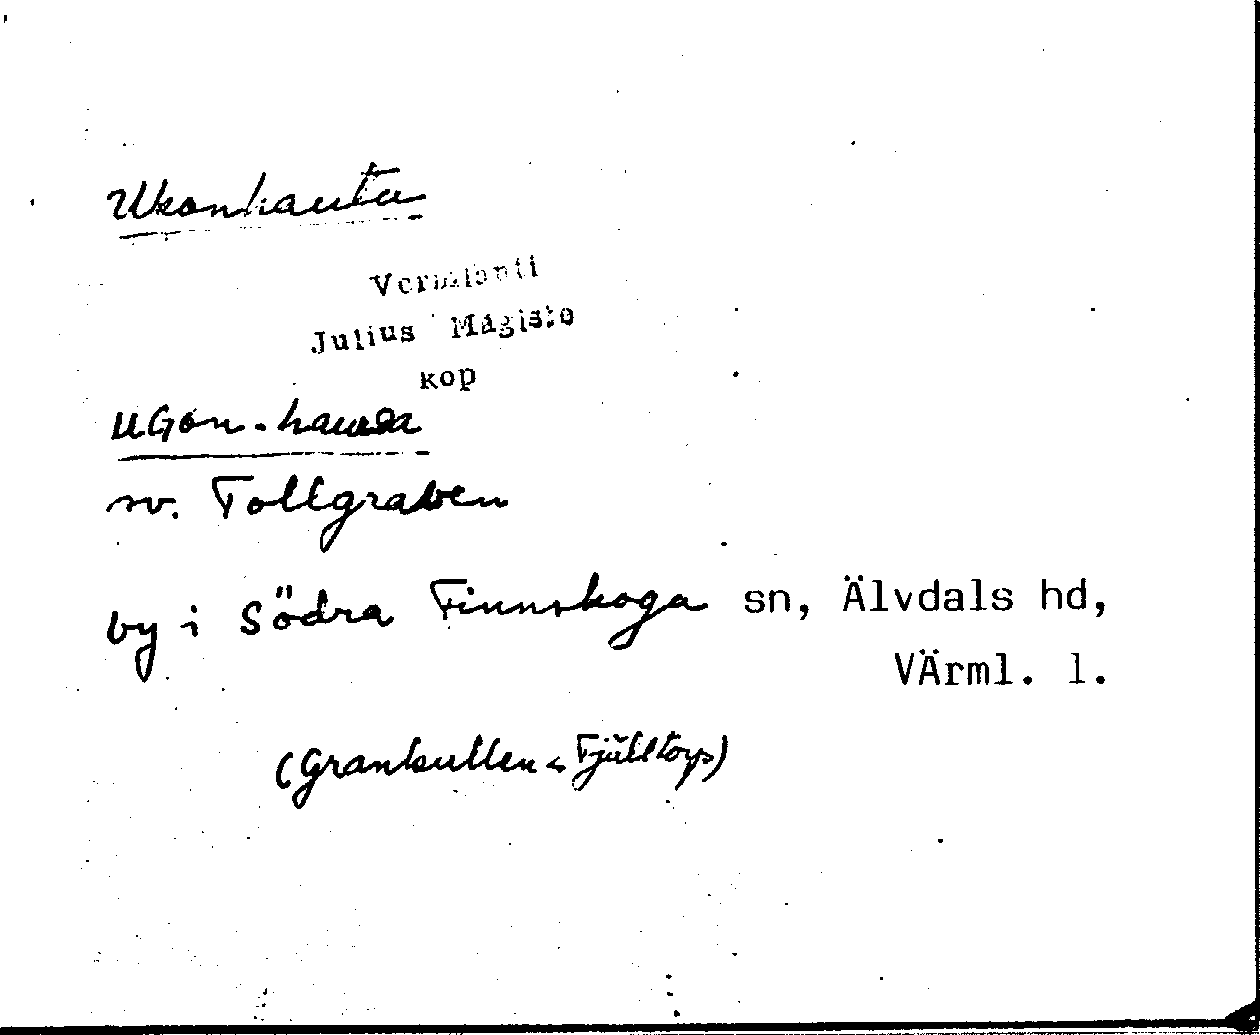 Ukonhauta
Vermlanti
Julius Mägiste
kop
uGon-hauda
sv. Tollgraven
by i Södra Finnskoga sn, Älvdals hd,
VÄrml. l.
(Grankullen